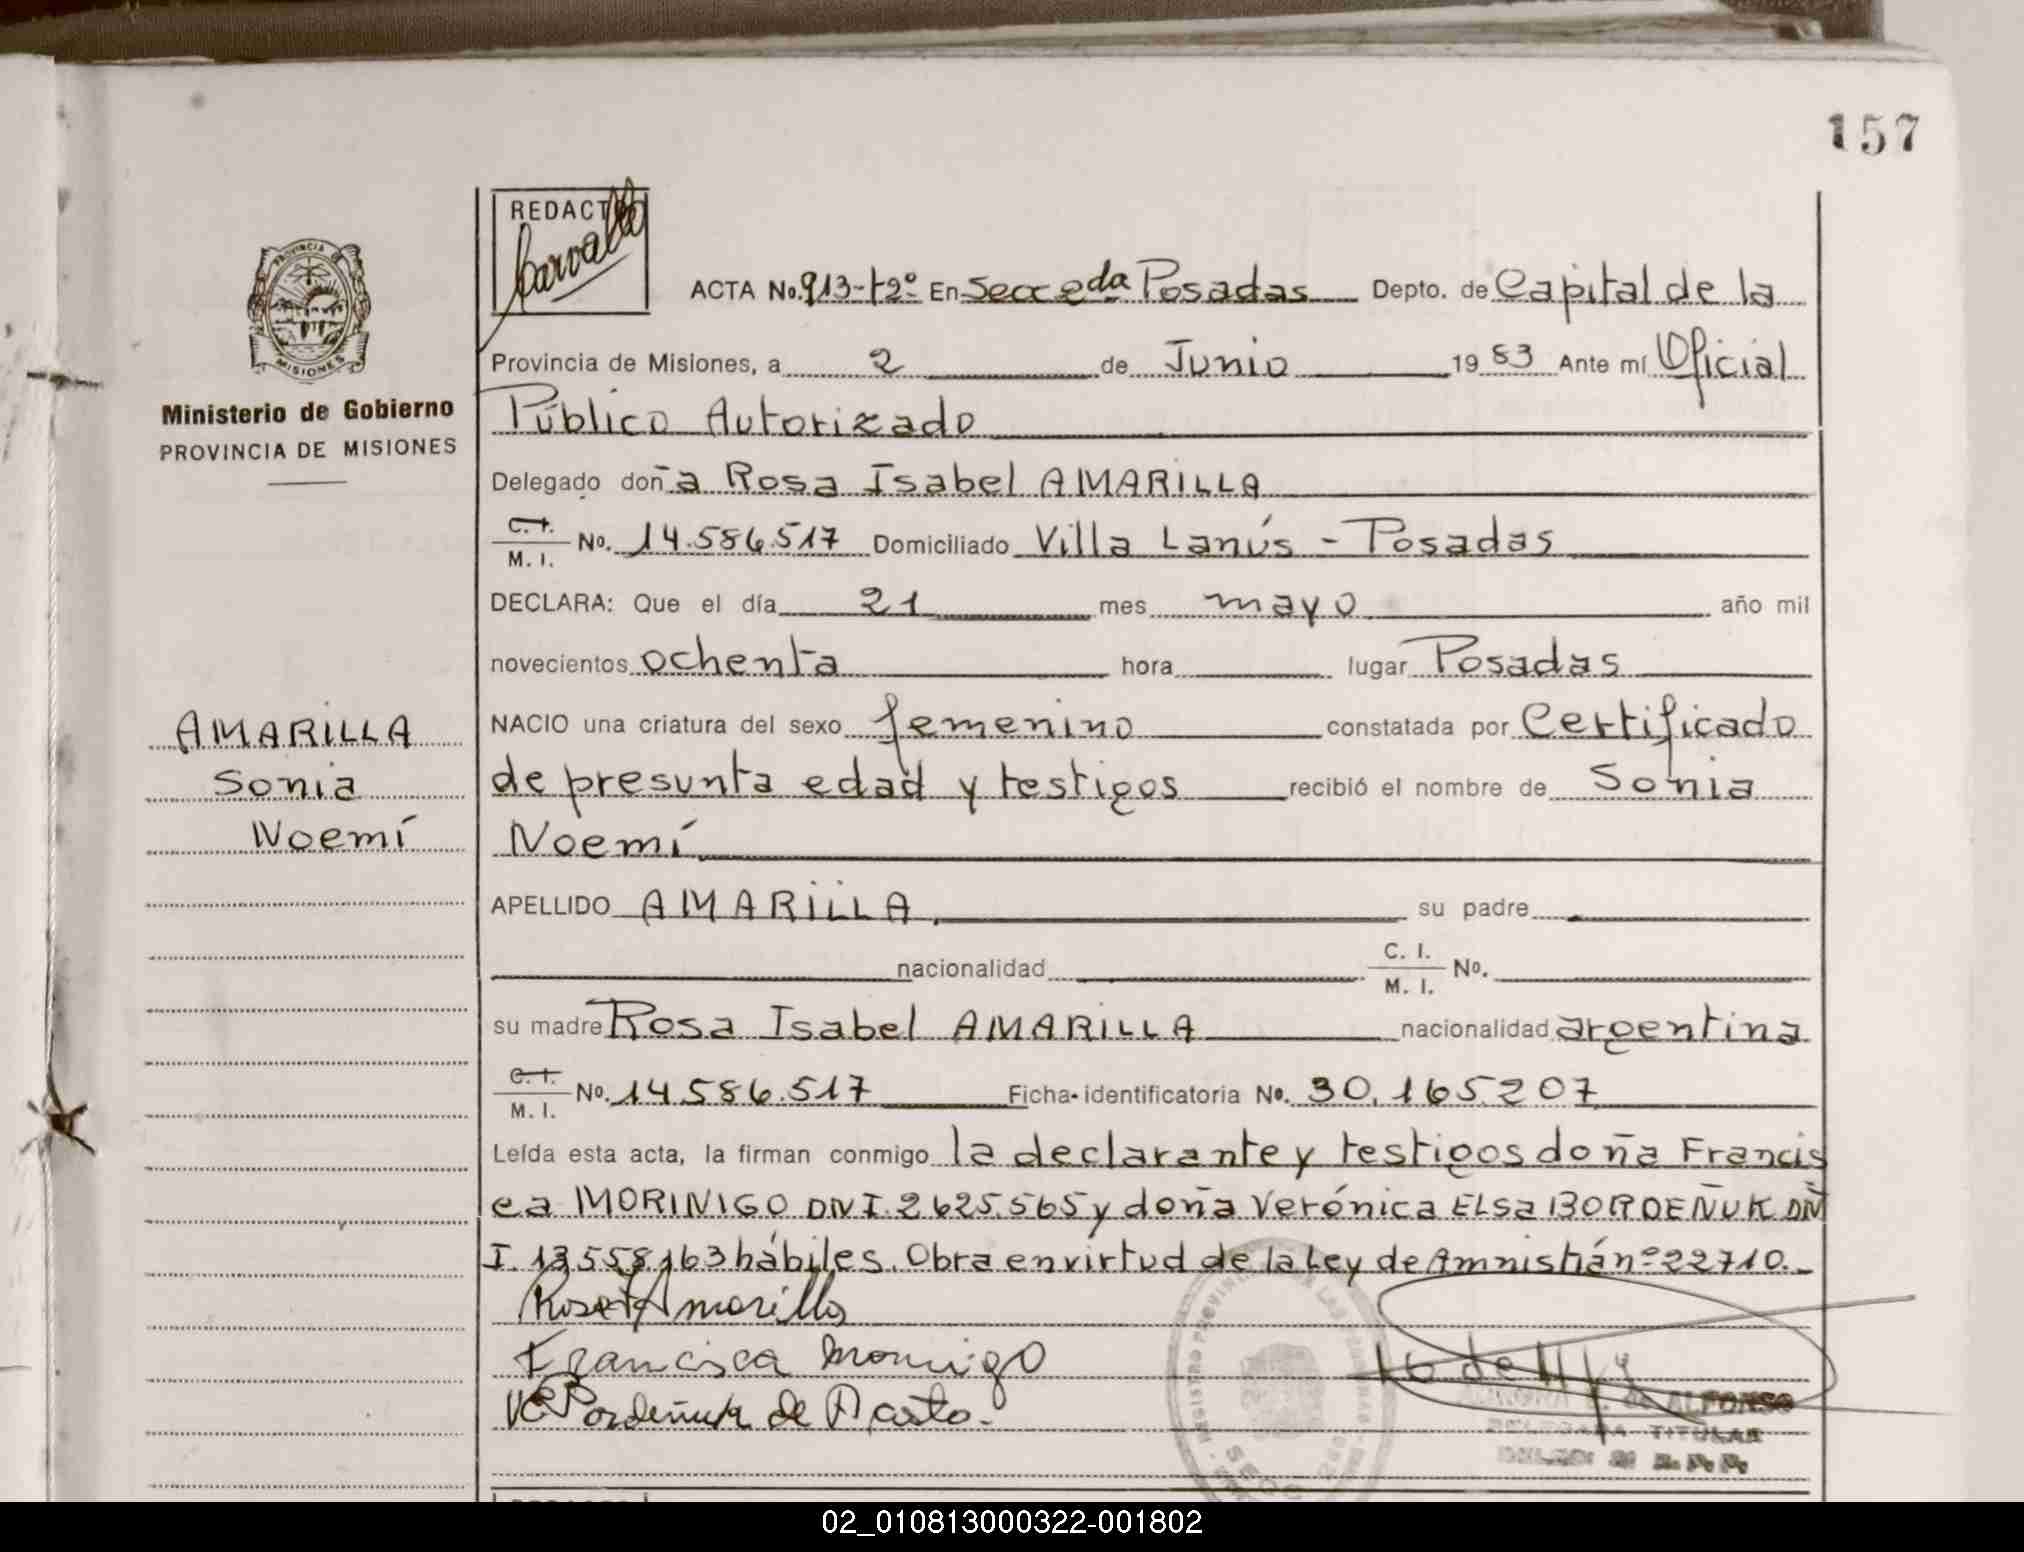 157
REDACTO
Carvallo
PROVINCIA
MISIONES
Ministerio de Gobierno
PROVINCIA DE MISIONES
ACTA No. 913-t2º En Secc 2da Posadas Depto. de Capital de la
Provincia de Misiones, a 2 de Junio 1983 Ante mí Oficial
Público Autorizado
Delegado doña Rosa Isabel AMARILLA
C. I. / M. I. No. 14.586.517 Domiciliado Villa Lanús - Posadas
DECLARA: Que el día 21 mes mayo año mil
novecientos ochenta hora lugar Posadas
NACIO una criatura del sexo femenino constatada por Certificado
de presunta edad y testigos recibió el nombre de Sonia
Noemí
AMARILLA
Sonia
Noemí
APELLIDO AMARILLA su padre
nacionalidad C. I. / M. I. No.
su madre Rosa Isabel AMARILLA nacionalidad argentina
C. I. / M. I. No. 14.586.517 Ficha identificatoria No. 30.165.207
Leída esta acta, la firman conmigo la declarante y testigos doña Francis
ca MORINIGO DNI. 2625.565 y doña Verónica ELSa BORDEÑUK DN
I. 13558163 hábiles. Obra en virtud de la Ley de Amnistía nº 22710.
Rosa I Amarilla
Francisca Morinigo
VEBordeñuk de
DE ALFONSO
TITULAR
02_010813000322-001802